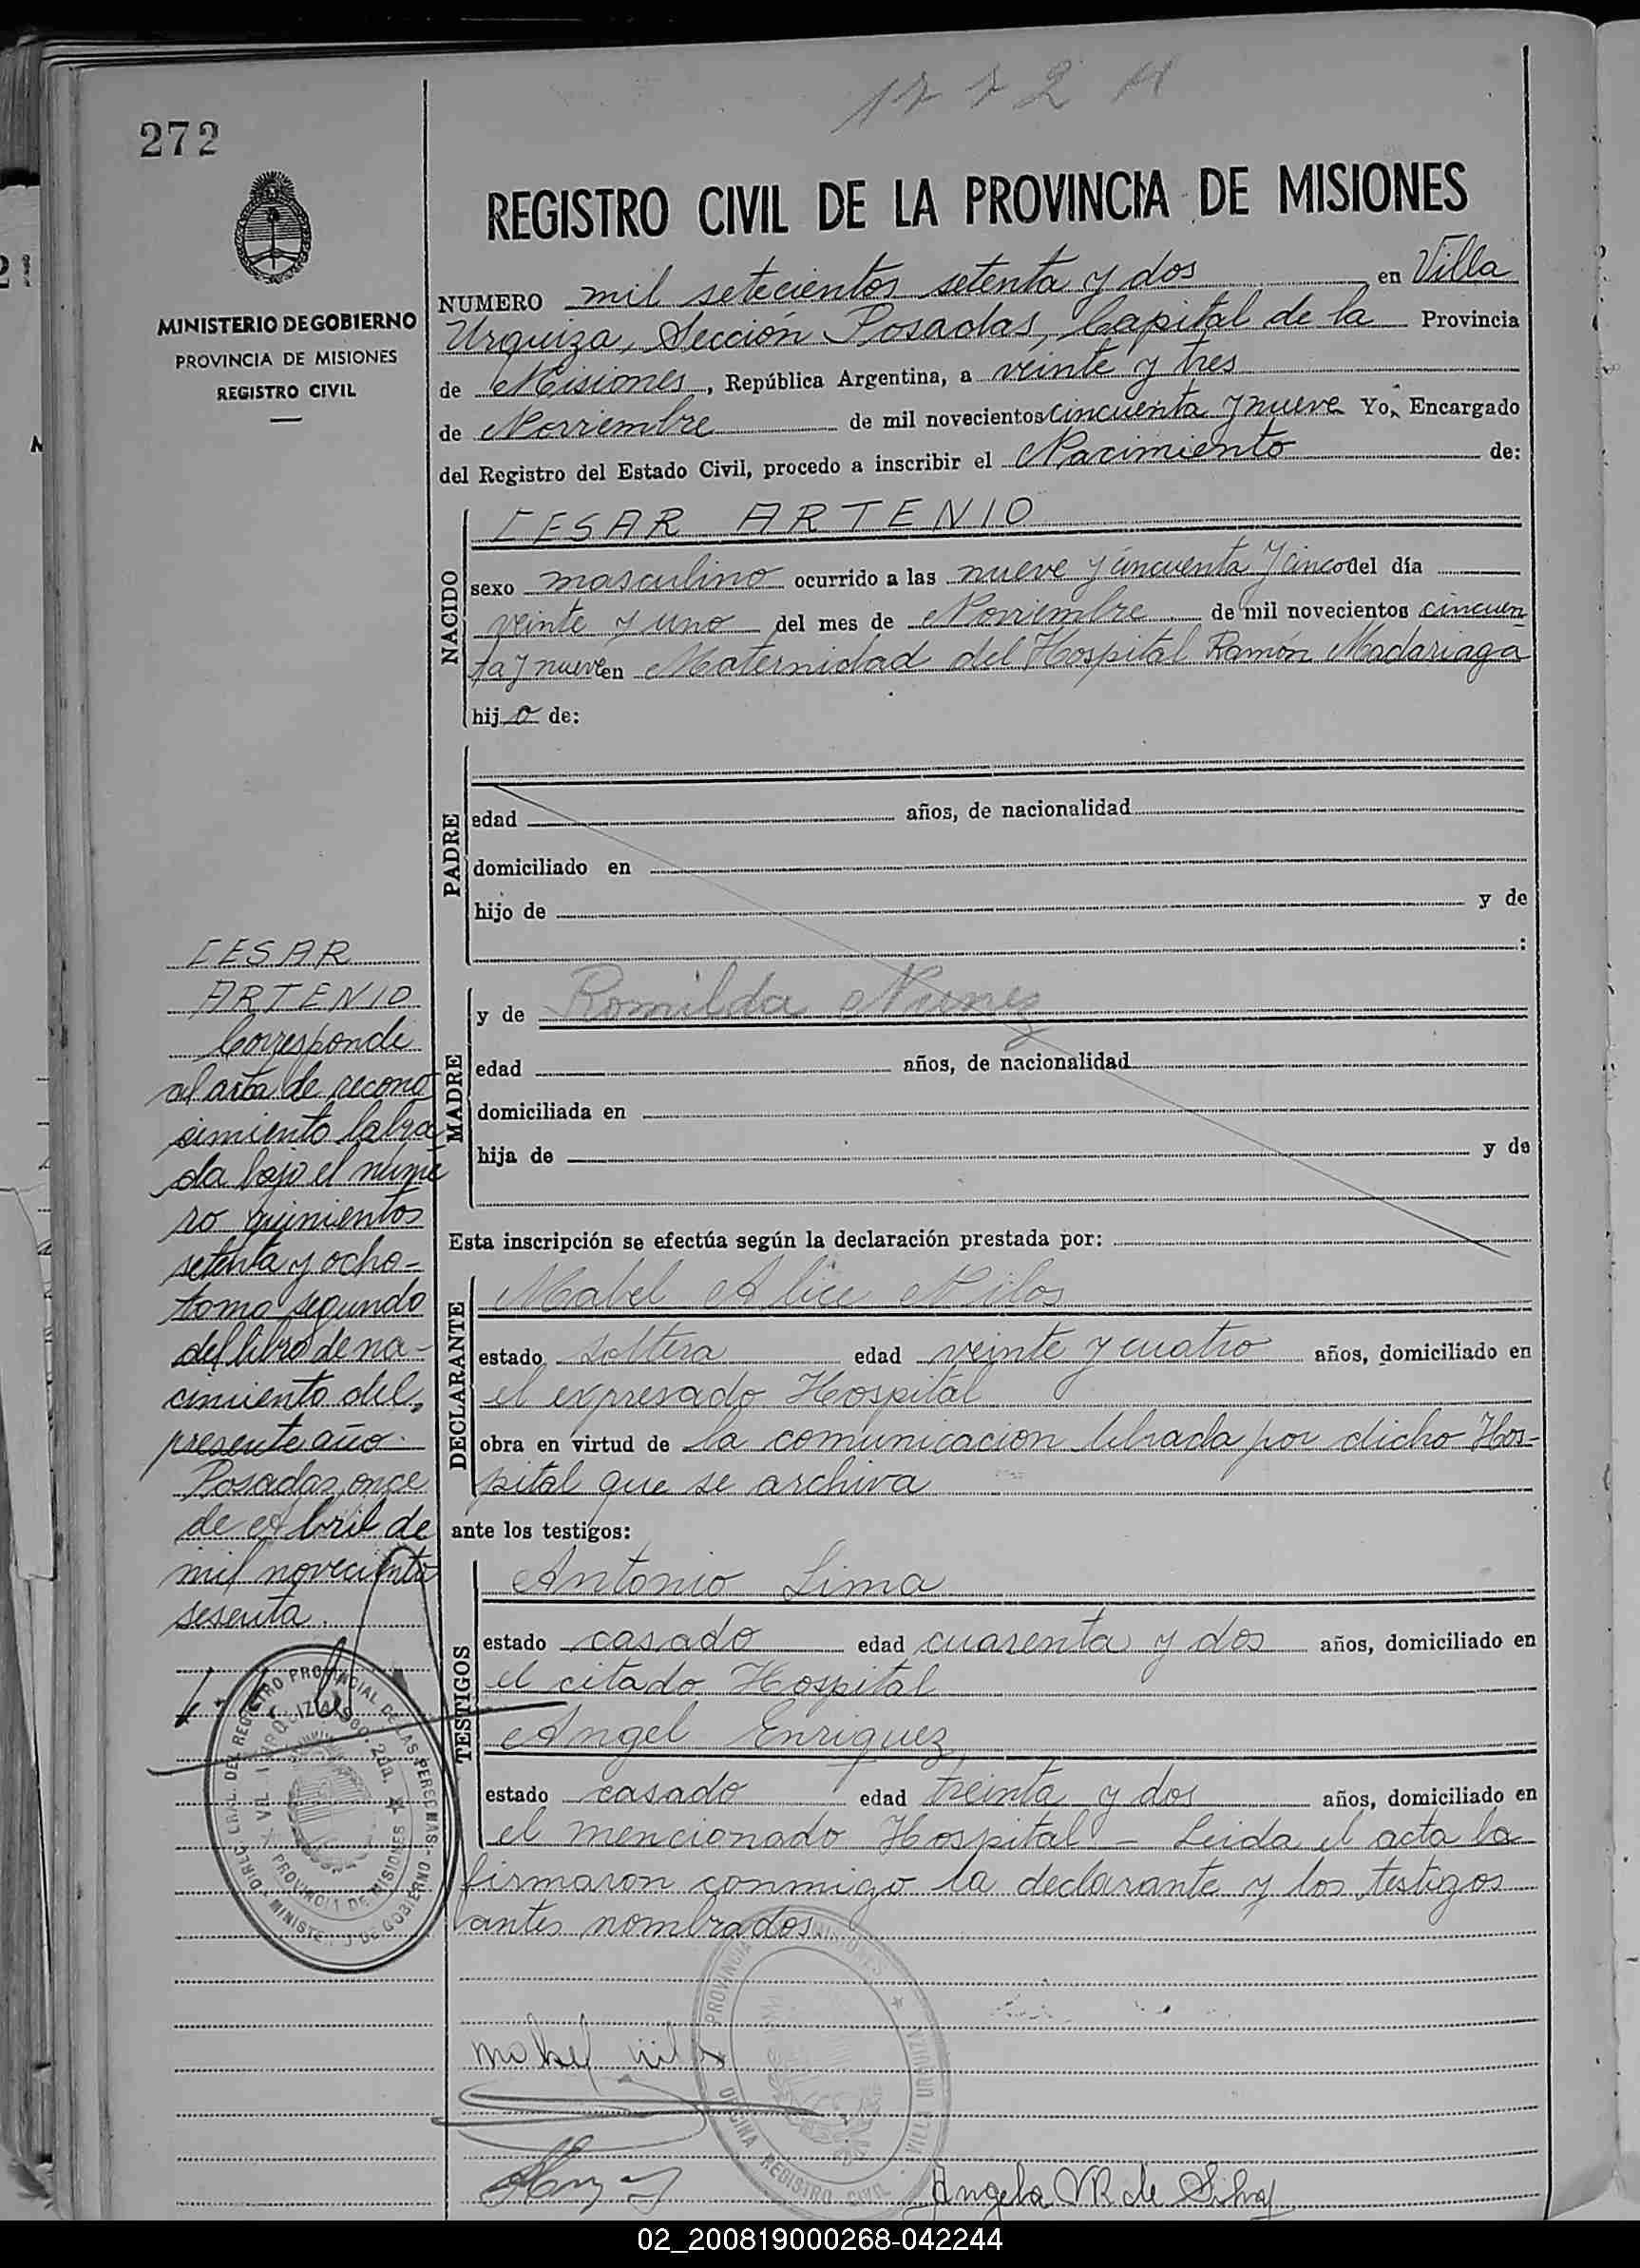 1772
272
REGISTRO CIVIL DE LA PROVINCIA DE MISIONES
MINISTERIO DE GOBIERNO
PROVINCIA DE MISIONES
REGISTRO CIVIL
NUMERO mil setecientos setenta y dos en Villa
Urquiza, Sección Posadas, Capital de la Provincia
de Misiones, República Argentina, a veinte y tres
de Noviembre de mil novecientos cincuenta y nueve Yo, Encargado
del Registro del Estado Civil, procedo a inscribir el Nacimiento de:
NACIDO
CESAR ARTENIO
sexo masculino ocurrido a las nueve y cincuenta y cinco del día
veinte y uno del mes de Noviembre de mil novecientos cincuen
ta y nueve en Maternidad del Hospital Ramón Madariaga
hijo de:
PADRE
edad años, de nacionalidad
domiciliado en
hijo de y de
:
MADRE
y de Romilda Nunez
edad años, de nacionalidad
domiciliada en
hija de y de
Esta inscripción se efectúa según la declaración prestada por:
DECLARANTE
Mabel Alice Nilos
estado soltera edad veinte y cuatro años, domiciliado en
el expresado Hospital
obra en virtud de la comunicacion librada por dicho Hos-
pital que se archiva
ante los testigos:
TESTIGOS
Antonio Lima
estado casado edad cuarenta y dos años, domiciliado en
el citado Hospital
Angel Enriquez
estado casado edad treinta y dos años, domiciliado en
el mencionado Hospital - Leida el acta la
firmaron conmigo la declarante y los testigos
antes nombrados
CESAR
ARTENIO
Corresponde
al acta de recono
simiento labra
da bajo el nume
ro quinientos
setenta y ocho-
tomo segundo
del libro de na-
cimiento del
presente año.
Posadas, once
de Abril de
mil novecientos
sesenta.
PROVINCIA DE MISIONES
OFICINA REGISTRO CIVIL VILLA URQUIZA
Mabel Nilos
Angela R de Silva
02_200819000268-042244